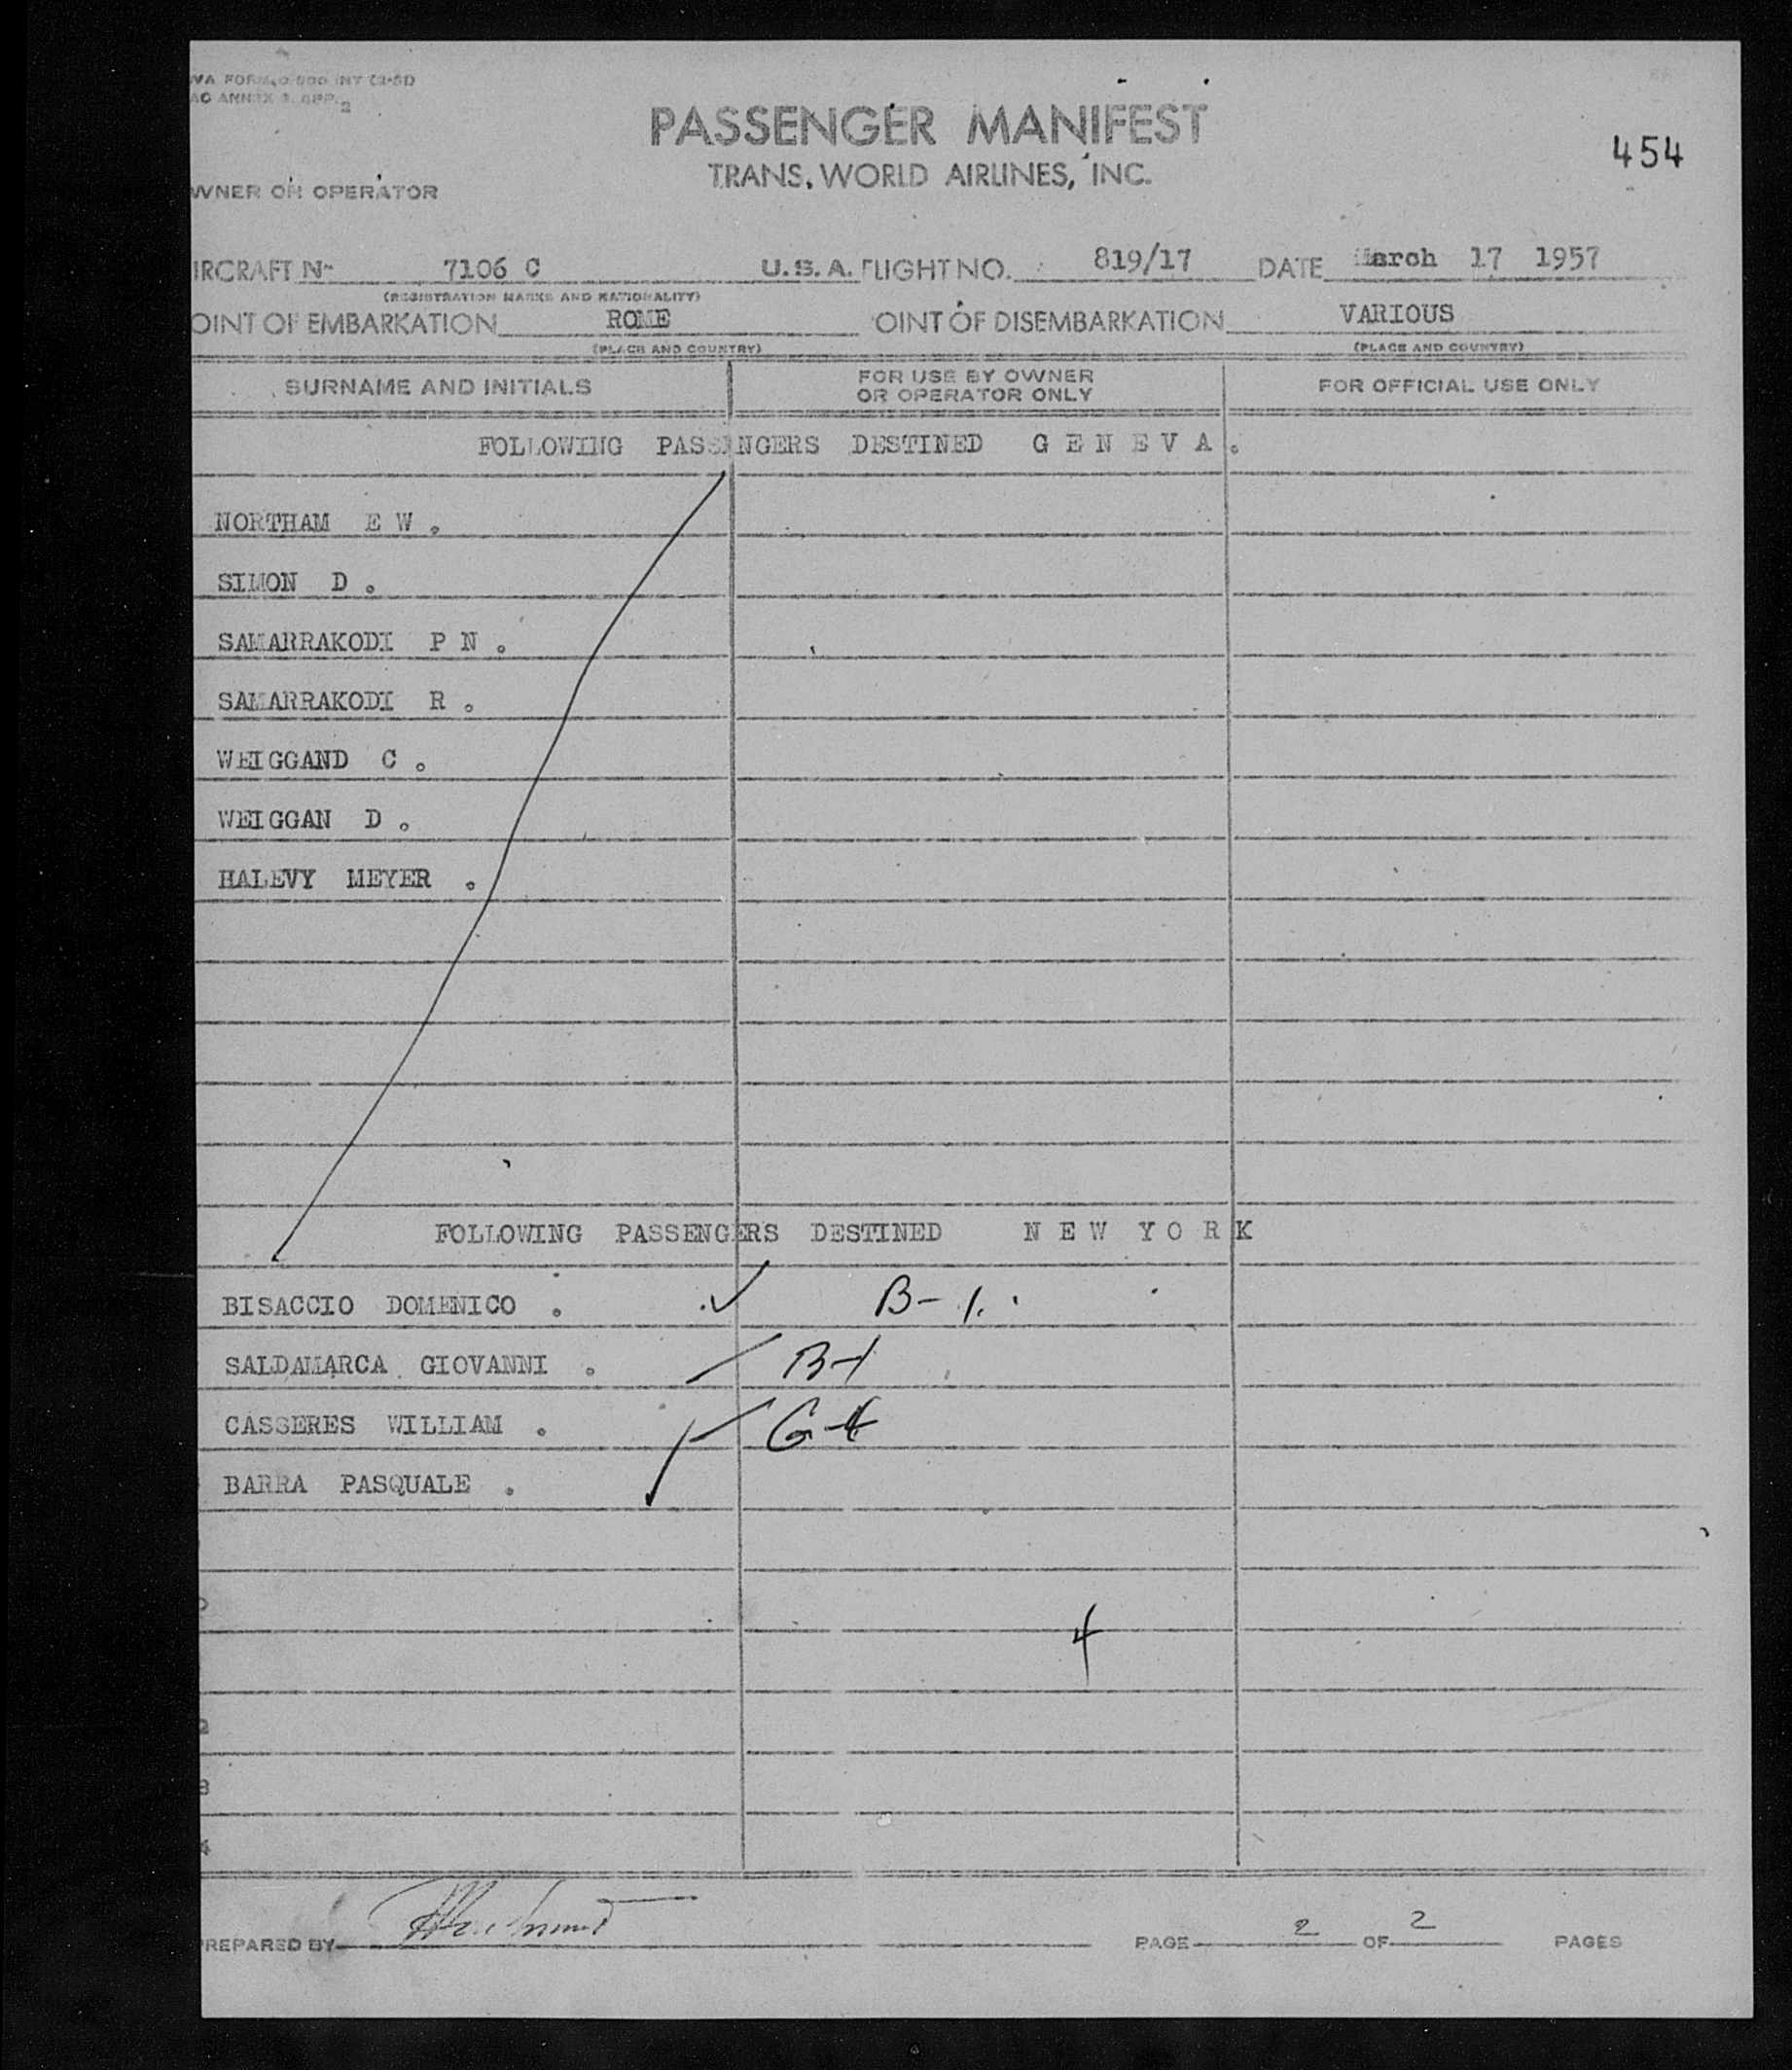 WA FORM 0-900 INT (2-51)
AO ANNEX 9. APP. 2
PASSENGER MANIFEST
454
TRANS. WORLD AIRLINES, INC.
WNER OR OPERATOR
IRCRAFT N- 7106 C U.S.A. FLIGHT NO. 819/17 DATE March 17 1957
(REGISTRATION MARKS AND NATIONALITY)
OINT OF EMBARKATION ROME OINT OF DISEMBARKATION VARIOUS
(PLACE AND COUNTRY) (PLACE AND COUNTRY)
SURNAME AND INITIALS FOR USE BY OWNER OR OPERATOR ONLY FOR OFFICIAL USE ONLY
FOLLOWING PASSENGERS DESTINED G E N E V A .
NORTHAM E W .
SIMON D .
SAMARRAKODI P N .
SAMARRAKODI R .
WEIGGAND C .
WEIGGAN D .
HALEVY MEYER .
FOLLOWING PASSENGERS DESTINED N E W Y O R K
BISACCIO DOMENICO . ✓ B-1.
SALDAMARCA GIOVANNI . B-1
CASSERES WILLIAM . G-4
BARRA PASQUALE .
4
REPARED BY PAGE 2 OF 2 PAGES